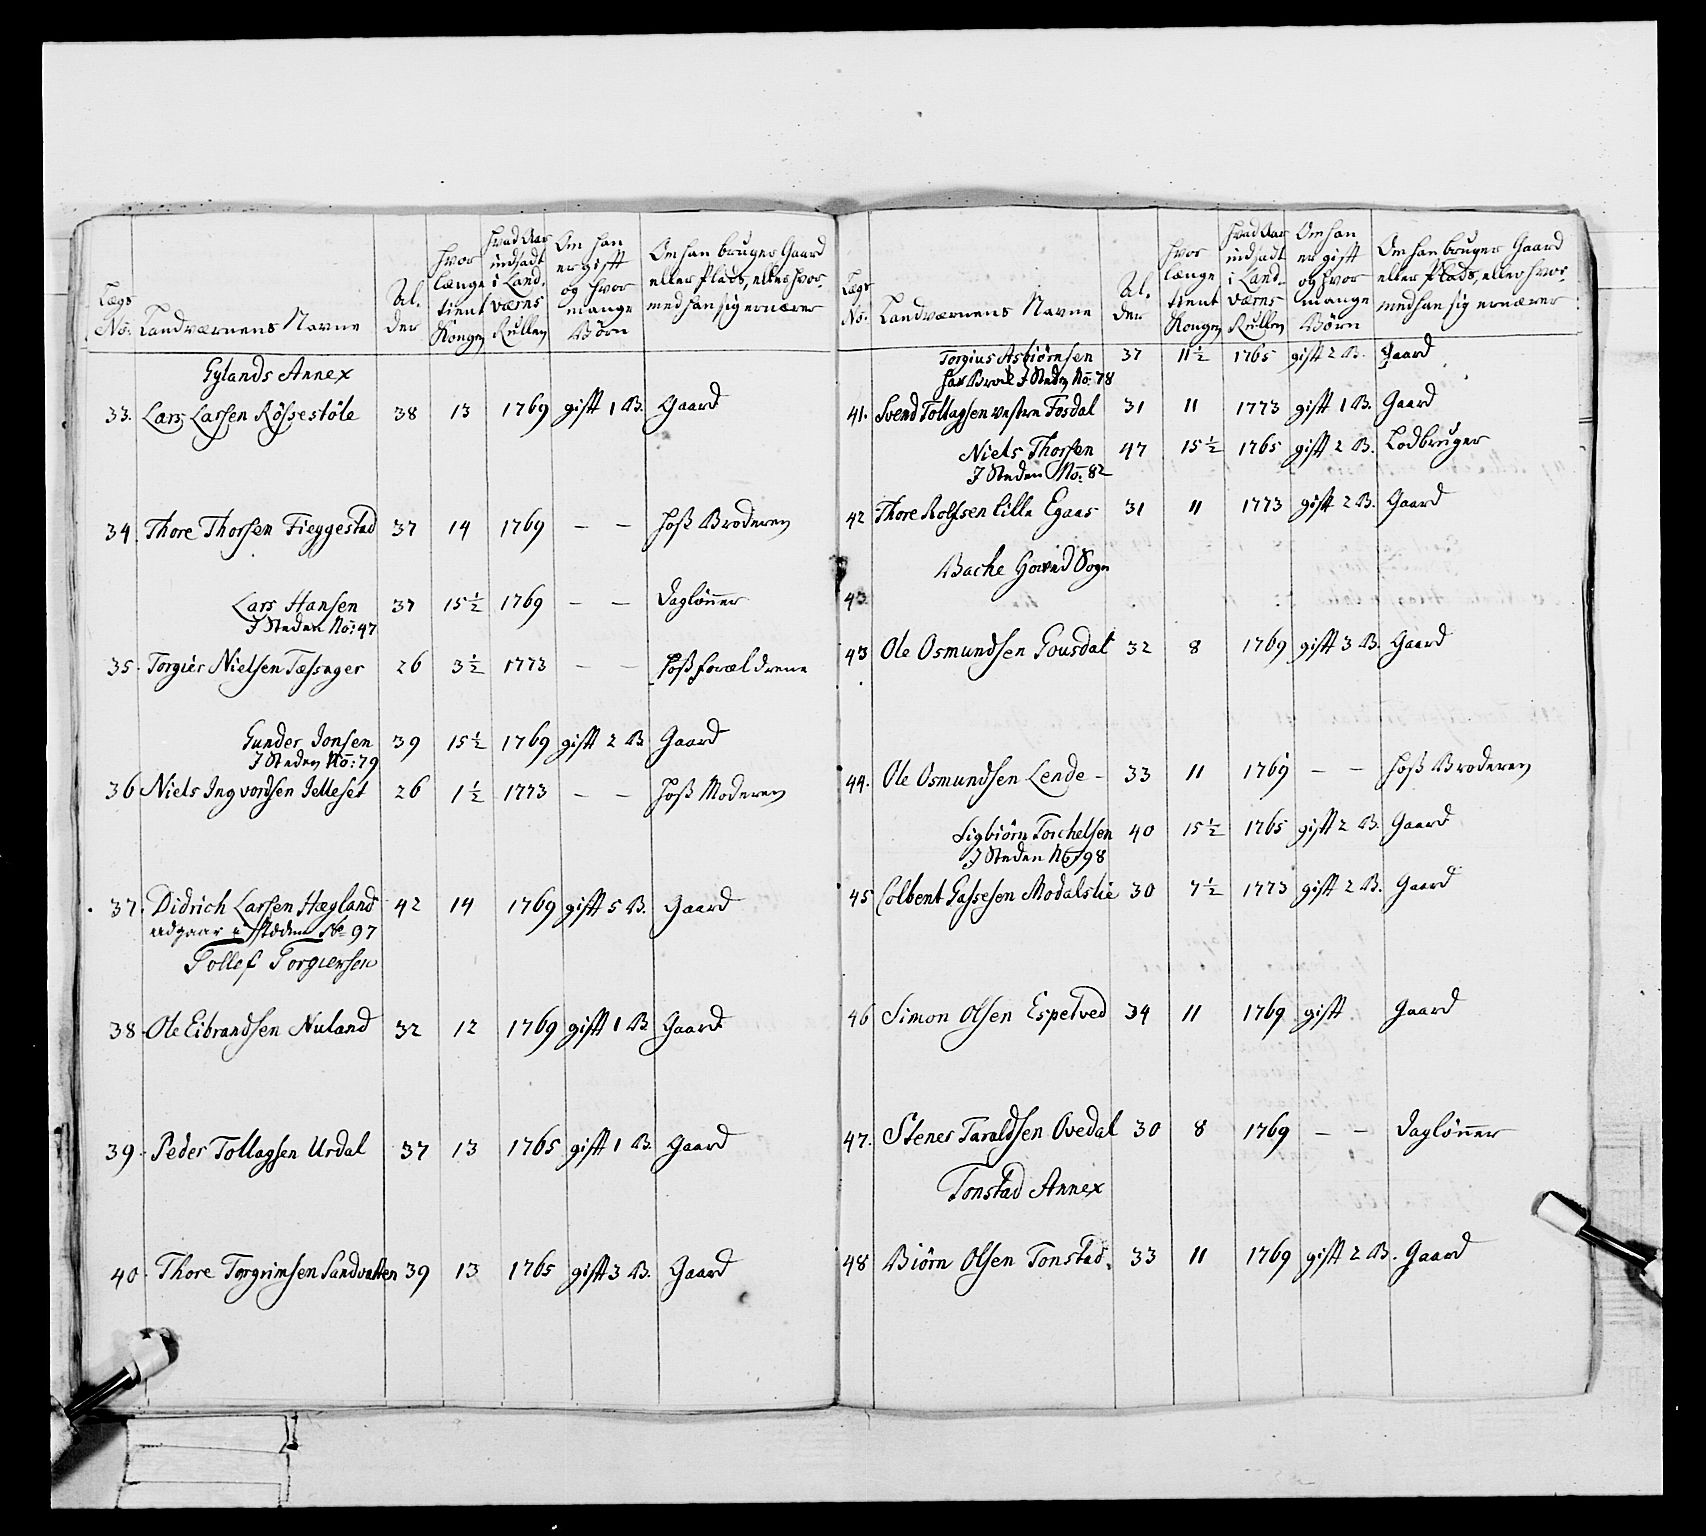 Lægs No. Landværnens Navne Alder hvor længe tient Kongen hvad Aar indsadt i Landværns Rullen Om han er gift og hvor mange Børn Om han bruger Gaard eller Plads, eller hvormed han sig ernærer
Gylands Annex
33. Lars Larsen Røssestøle 38 13 1769 gift 1 B. Gaard
34. Thore Thorsen Fieggestad 37 14 1769 — — hoß Broderen
Lars Hansen 37 15½ 1769 — — Daglønner
I Steden No: 47
35. Torgier Nielsen Tæssager 26 3½ 1773 — — hoß forældrene
Gunder Jonsen 39 15½ 1769 gift 2 B Gaard
I Steden No: 79
36 Niels Ingvordsen Jelleset 26 1½ 1773 — — hoß Moderen
37. Didrich Larsen Hægland 42 14 1769 gift 5 B. Gaard
udgaar i stæden No 97
Tollef Torgiersen
38. Ole Eibrandsen Nuland 32 12 1769 gift 1 B Gaard
39. Peder Tollagsen Urdal 37 13 1765 gift 1 B. Gaard
40. Thore Torgrimsen Sandvatten 39 13 1765 gift 3 B. Gaard
Lægs No. Landværnens Navne Alder hvor længe tient Kongen hvad Aar indsadt i Landværns Rullen Om han er gift og hvor mange Børn Om han bruger Gaard eller Plads, eller hvormed han sig ernærer
Torgius Asbiørnsen 37 11½ 1765 gift 2 B. Gaard
har Brok I Steden No: 78
41. Svend Tollagsen vestre Fosdal 31 11 1773 gift 1 B. Gaard
Niels Thorsen 47 15½ 1765 gift 2 B. Lodbruger
I Steden No: 82
42 Thore Rolfsen lille Egaas 31 11 1773 gift 2 B. Gaard
Bache Hoved Sogn
43
43 Ole Osmundsen Gousdal 32 8 1769 gift 3 B. Gaard
44. Ole Osmundsen Lende - 33 11 1769 — — hoß Broderen
Sigbiørn Torchelsen 40 15½ 1765 gift 2 B. Gaard
I Steden No 98
45 Colbent Gassesen Modalslie 30 7½ 1773 gift 2 B. Gaard
46 Simon Olsen Espetved 34 11 1769 gift Gaard
47. Stener Taraldsen Ovedal 30 8 1769 — — Daglønner
Tonstad Annex
48 Biørn Olsen Tonstad. 33 11 1769 gift 2 B. Gaard